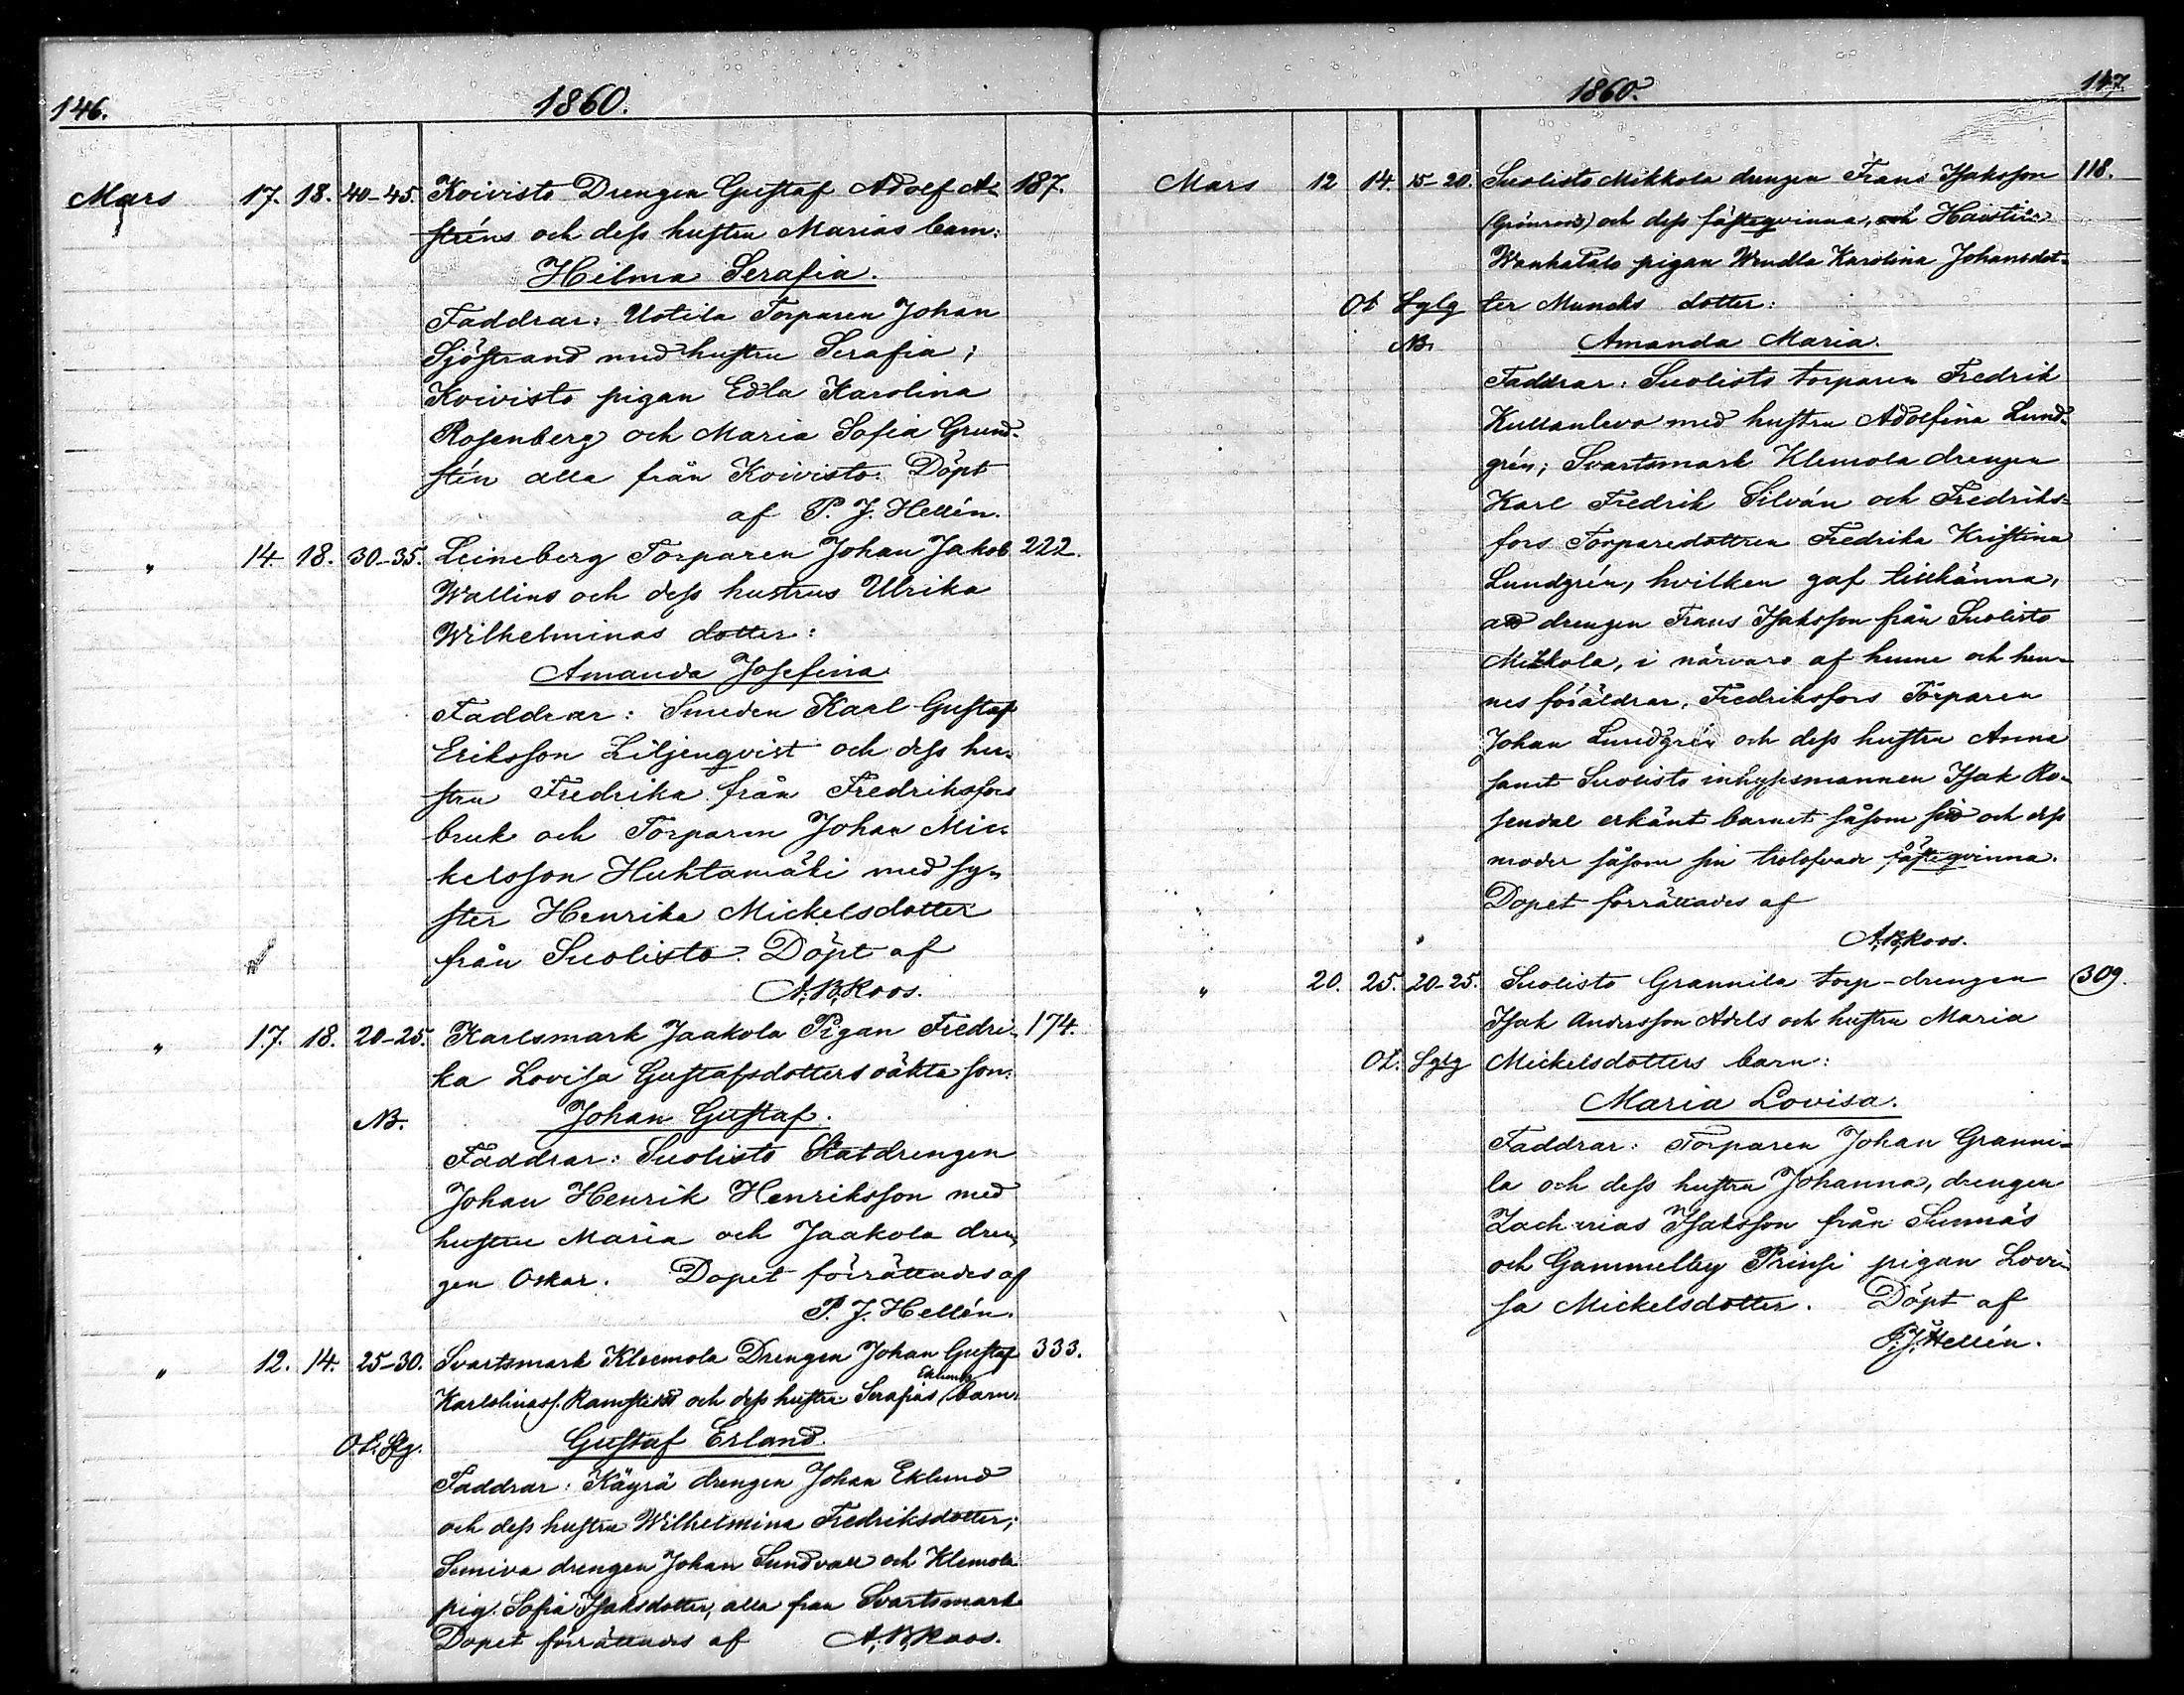 146.
1860.
Mars 17. 18. 40-45. Koivisto Drengen Gustaf Adolf Al- 187.
sténs och dess hustru Marias barn:
Hilma Serafia.
Faddrar: Uotila Torparen Johan
Sjöstrand med hustru Serafia;
Koivisto pigan Edla Karolina
Rosenberg och Maria Sofia Grund-
stén alla från Koivisto. Döpt
af P. J. Hellén.
" 14. 18. 30-35. Leineberg Torparen Johan Jakob 222.
Wallins och dess hustrus Ulrika
Wilhelminas dotter:
Amanda Josefina
Faddrar: Smeden Karl Gustaf
Eriksson Liljenqvist och dess hu-
stru Fredrika från Fredriksfors
bruk och Torparen Johan Mic-
kelsson Huhtamäki med sy-
ster Henrika Mickelsdotter
från Suolisto. Döpt af
A. B. Roos.
" 17. 18. 20-25. Karlsmark Jaakola Pigan Fredri- 174.
ka Lovisa Gustafsdotters oäkta son:
NB. Johan Gustaf.
Faddrar: Suolisto Statdrengen
Johan Henrik Henriksson med
hustru Maria och Jaakola dren-
gen Oskar. Dopet förrättades af
P. J. Hellén.
" 12. 14. 25-30. Svartsmark Kleemola Drengen Johan Gustaf 333.
Eklunds
Ramstedt och dess hustru Serafias barn:
O.L. Gustaf Erland.
Faddrar: Käyrä drengen Johan Eklund
och dess hustru Wilhelmina Fredriksdotter;
Suniva drengen Johan Sundvall och Klemola
pig. Sofia Isaksdotter, alla från Svartsmark
Dopet förrättades af A. B. Roos.
1860.
147.
Mars 12 14. 15-20. Suolisto Mikkola drengen Frans Isaksson 118.
(Grönroos) och dess fästeqvinna, och Haistila
Wanhatalo pigan Wendla Karolina Johansdot-
Ot Lglg ter Muncks dotter:
NB. Amanda Maria.
Faddrar: Suolisto torparen Fredrik
Kullanlevo med hustru Adolfina Lund-
grén; Svartsmark Klemola drengen
Karl Fredrik Silván och Fredriks-
fors Torparedottren Fredrika Kristina
Lundgrén, hvilken gaf tillkänna,
att drengen Frans Isaksson från Suolisto
Mikkola, i närvaro af henne och hen-
nes föräldrar, Fredriksfors Torparen
Johan Lundgrén och dess hustru Anna
samt Suolisto inhyssmannen Isak Ro-
sendal erkänt barnet såsom sitt och dess
moder såsom sin trolofvade fästeqvinna.
Dopet förrättades af
A. B. Roos.
" 20. 25. 20-25. Suolisto Grannila torp-drengen 309.
Isak Andersson Adels och hustru Maria
Ot. Lglg Mickelsdotters barn:
Maria Lovisa.
Faddrar: Torparen Johan Granni-
la och dess hustru Johanna, drengen
Zacharias Isaksson från Sunnäs
och Gammelby Prinsi pigan Lovi-
sa Mickelsdotter. Döpt af
P. J. Hellén.